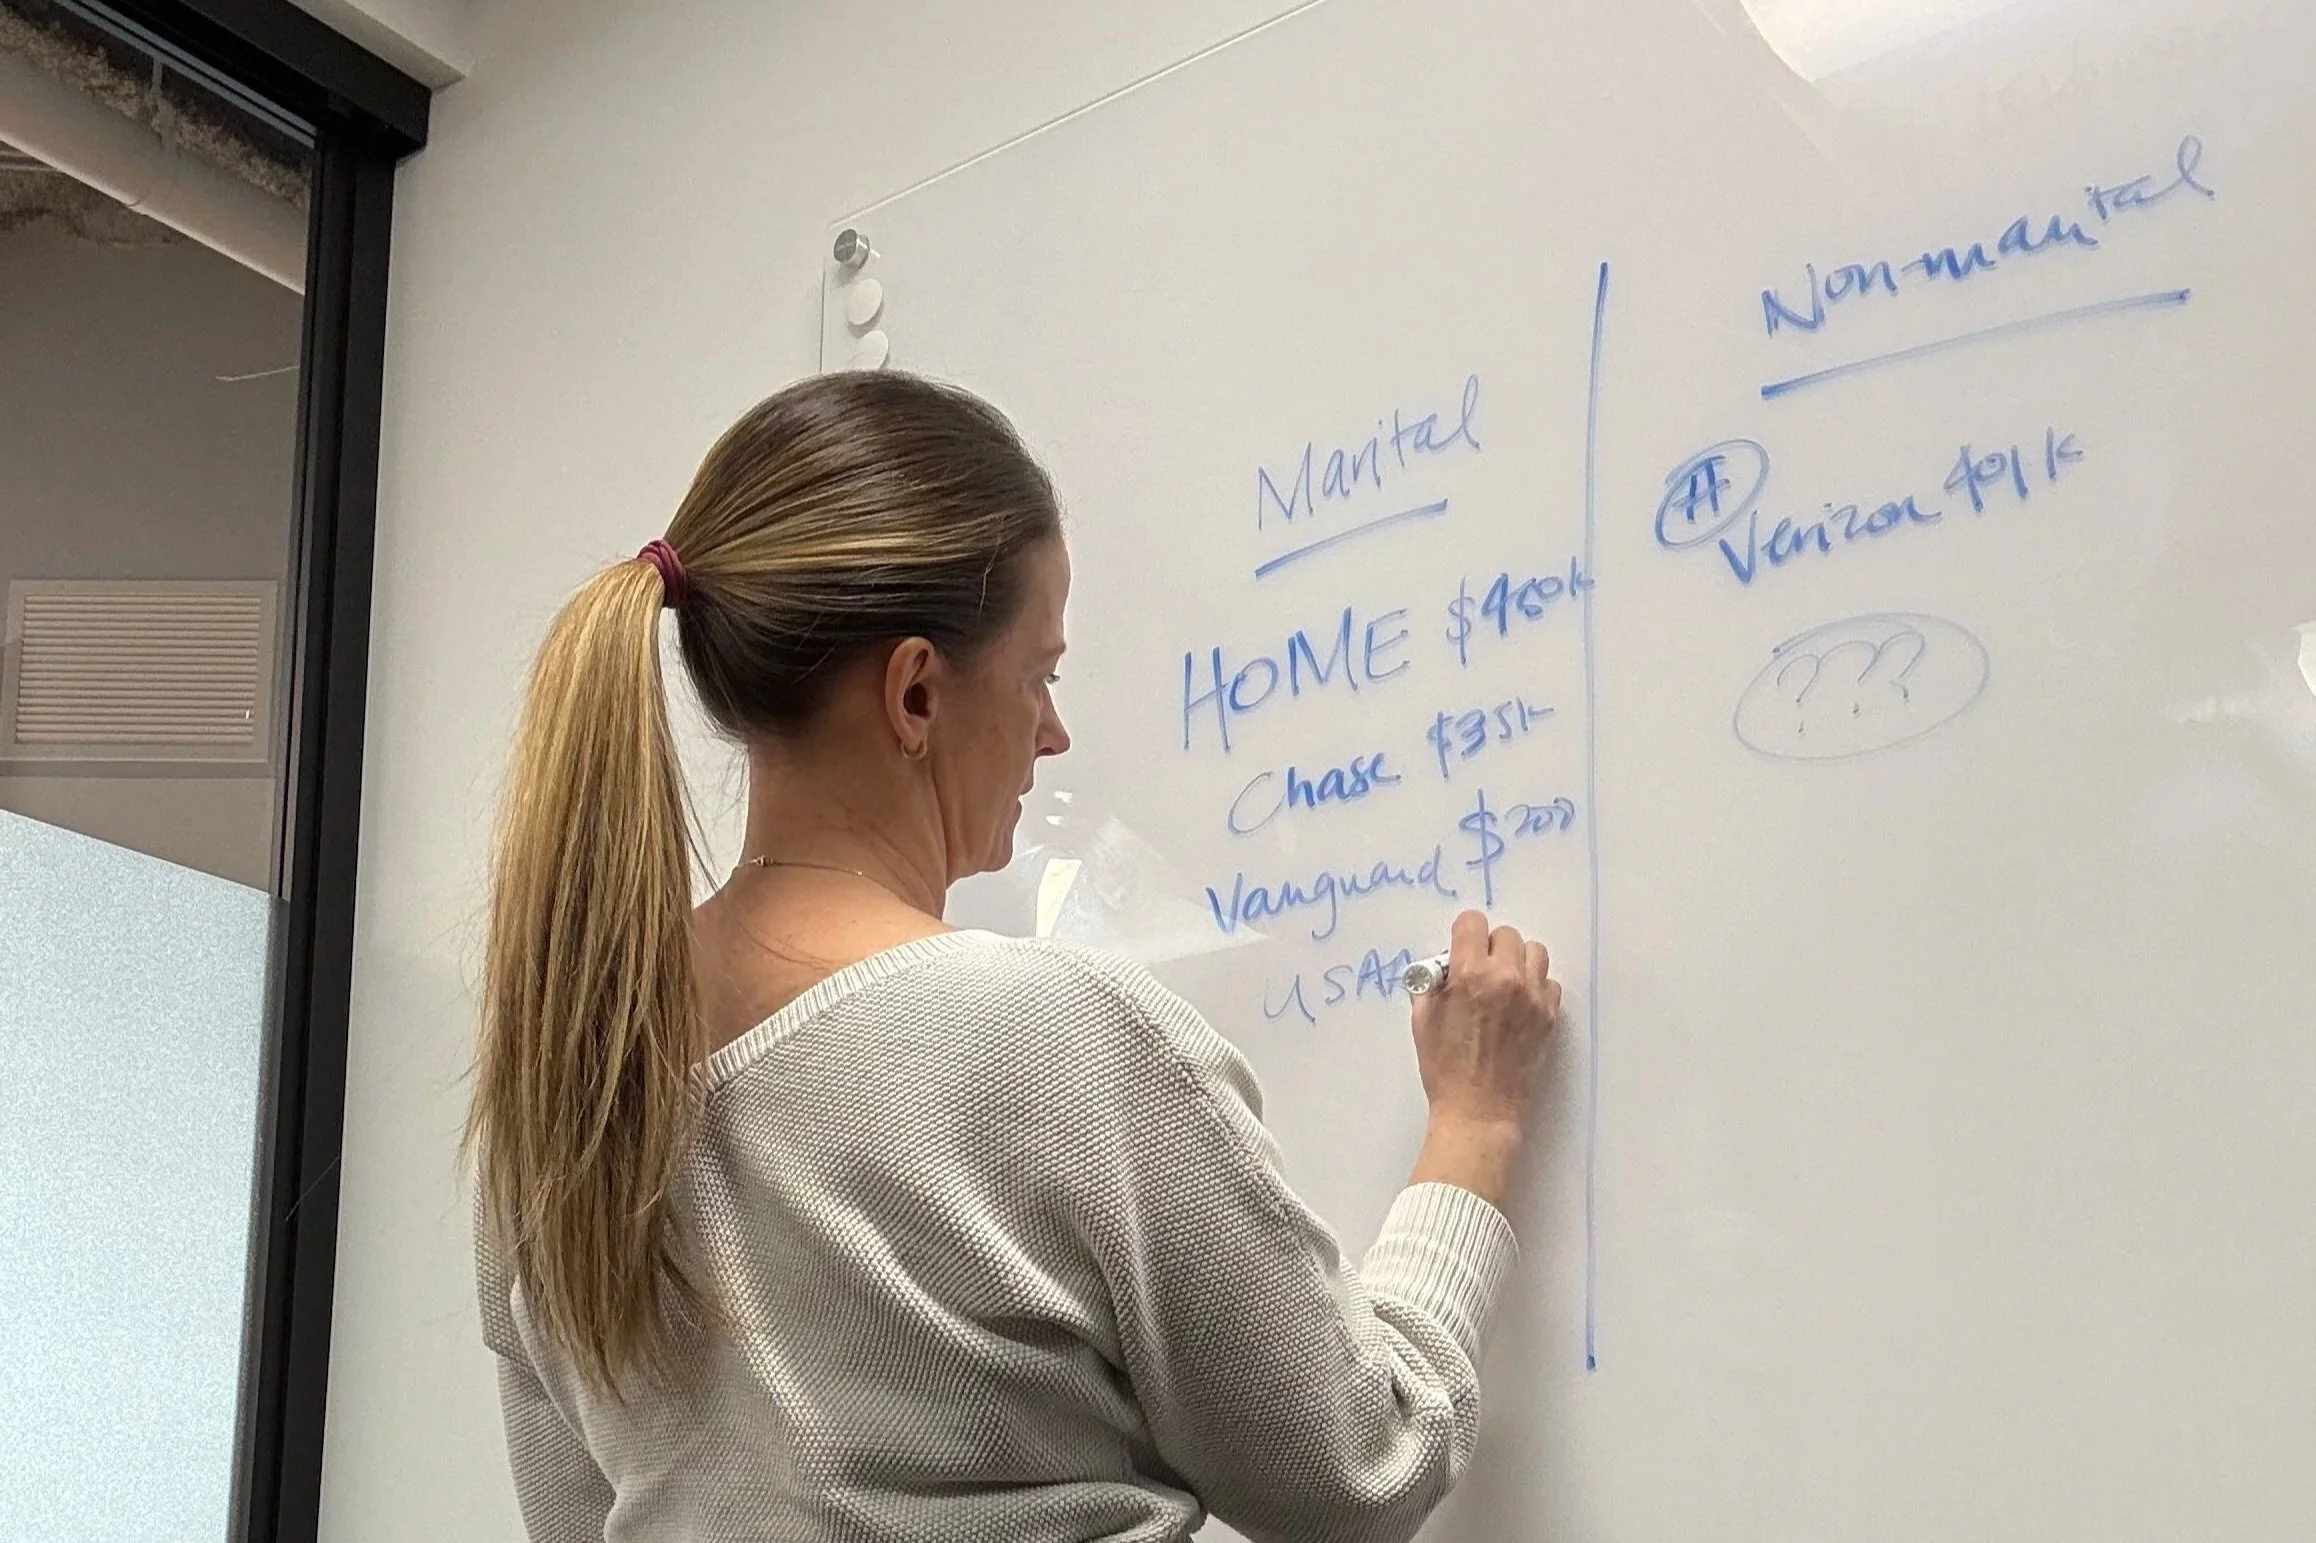 Marital
HOME $450k
Chase $35k
Vanguard $200
USAA
Non-marital
H
Verizon 401k
???